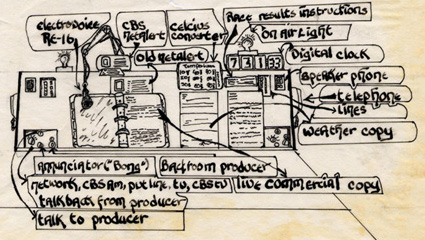 electrovoice
RE-16
CBS
Netalert
celcius
converter
Race results instructions
on air light
old netalert
Digital clock
7 3 1 33
speaker phone
telephone
lines
weather copy
Annunciator ("Bong")
Backroom producer
network, CBS Am, pvt line, tv, CBS tv
live commercial copy
talkback from producer
talk to producer